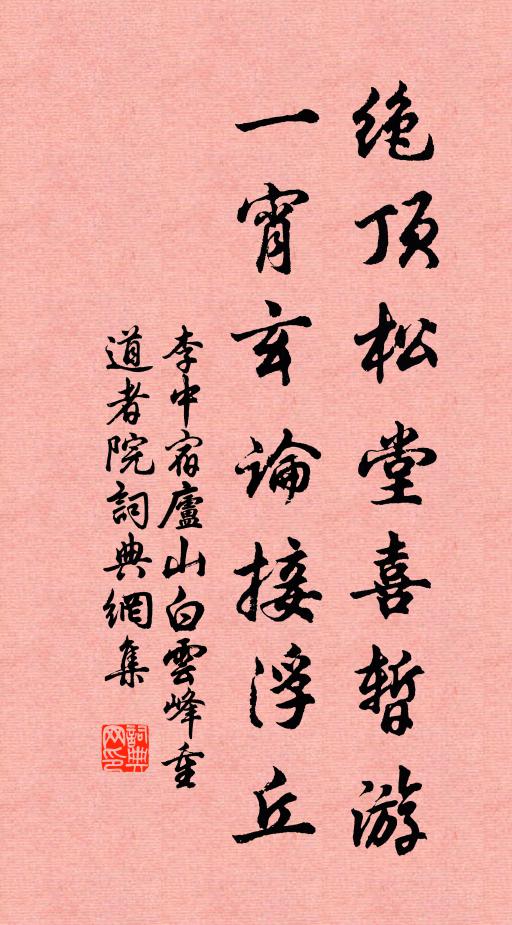 绝顶松堂喜暂游
一宵玄論接浮丘
李中宿廬山白雲峰重
道者院詞典網集
詞典
网印